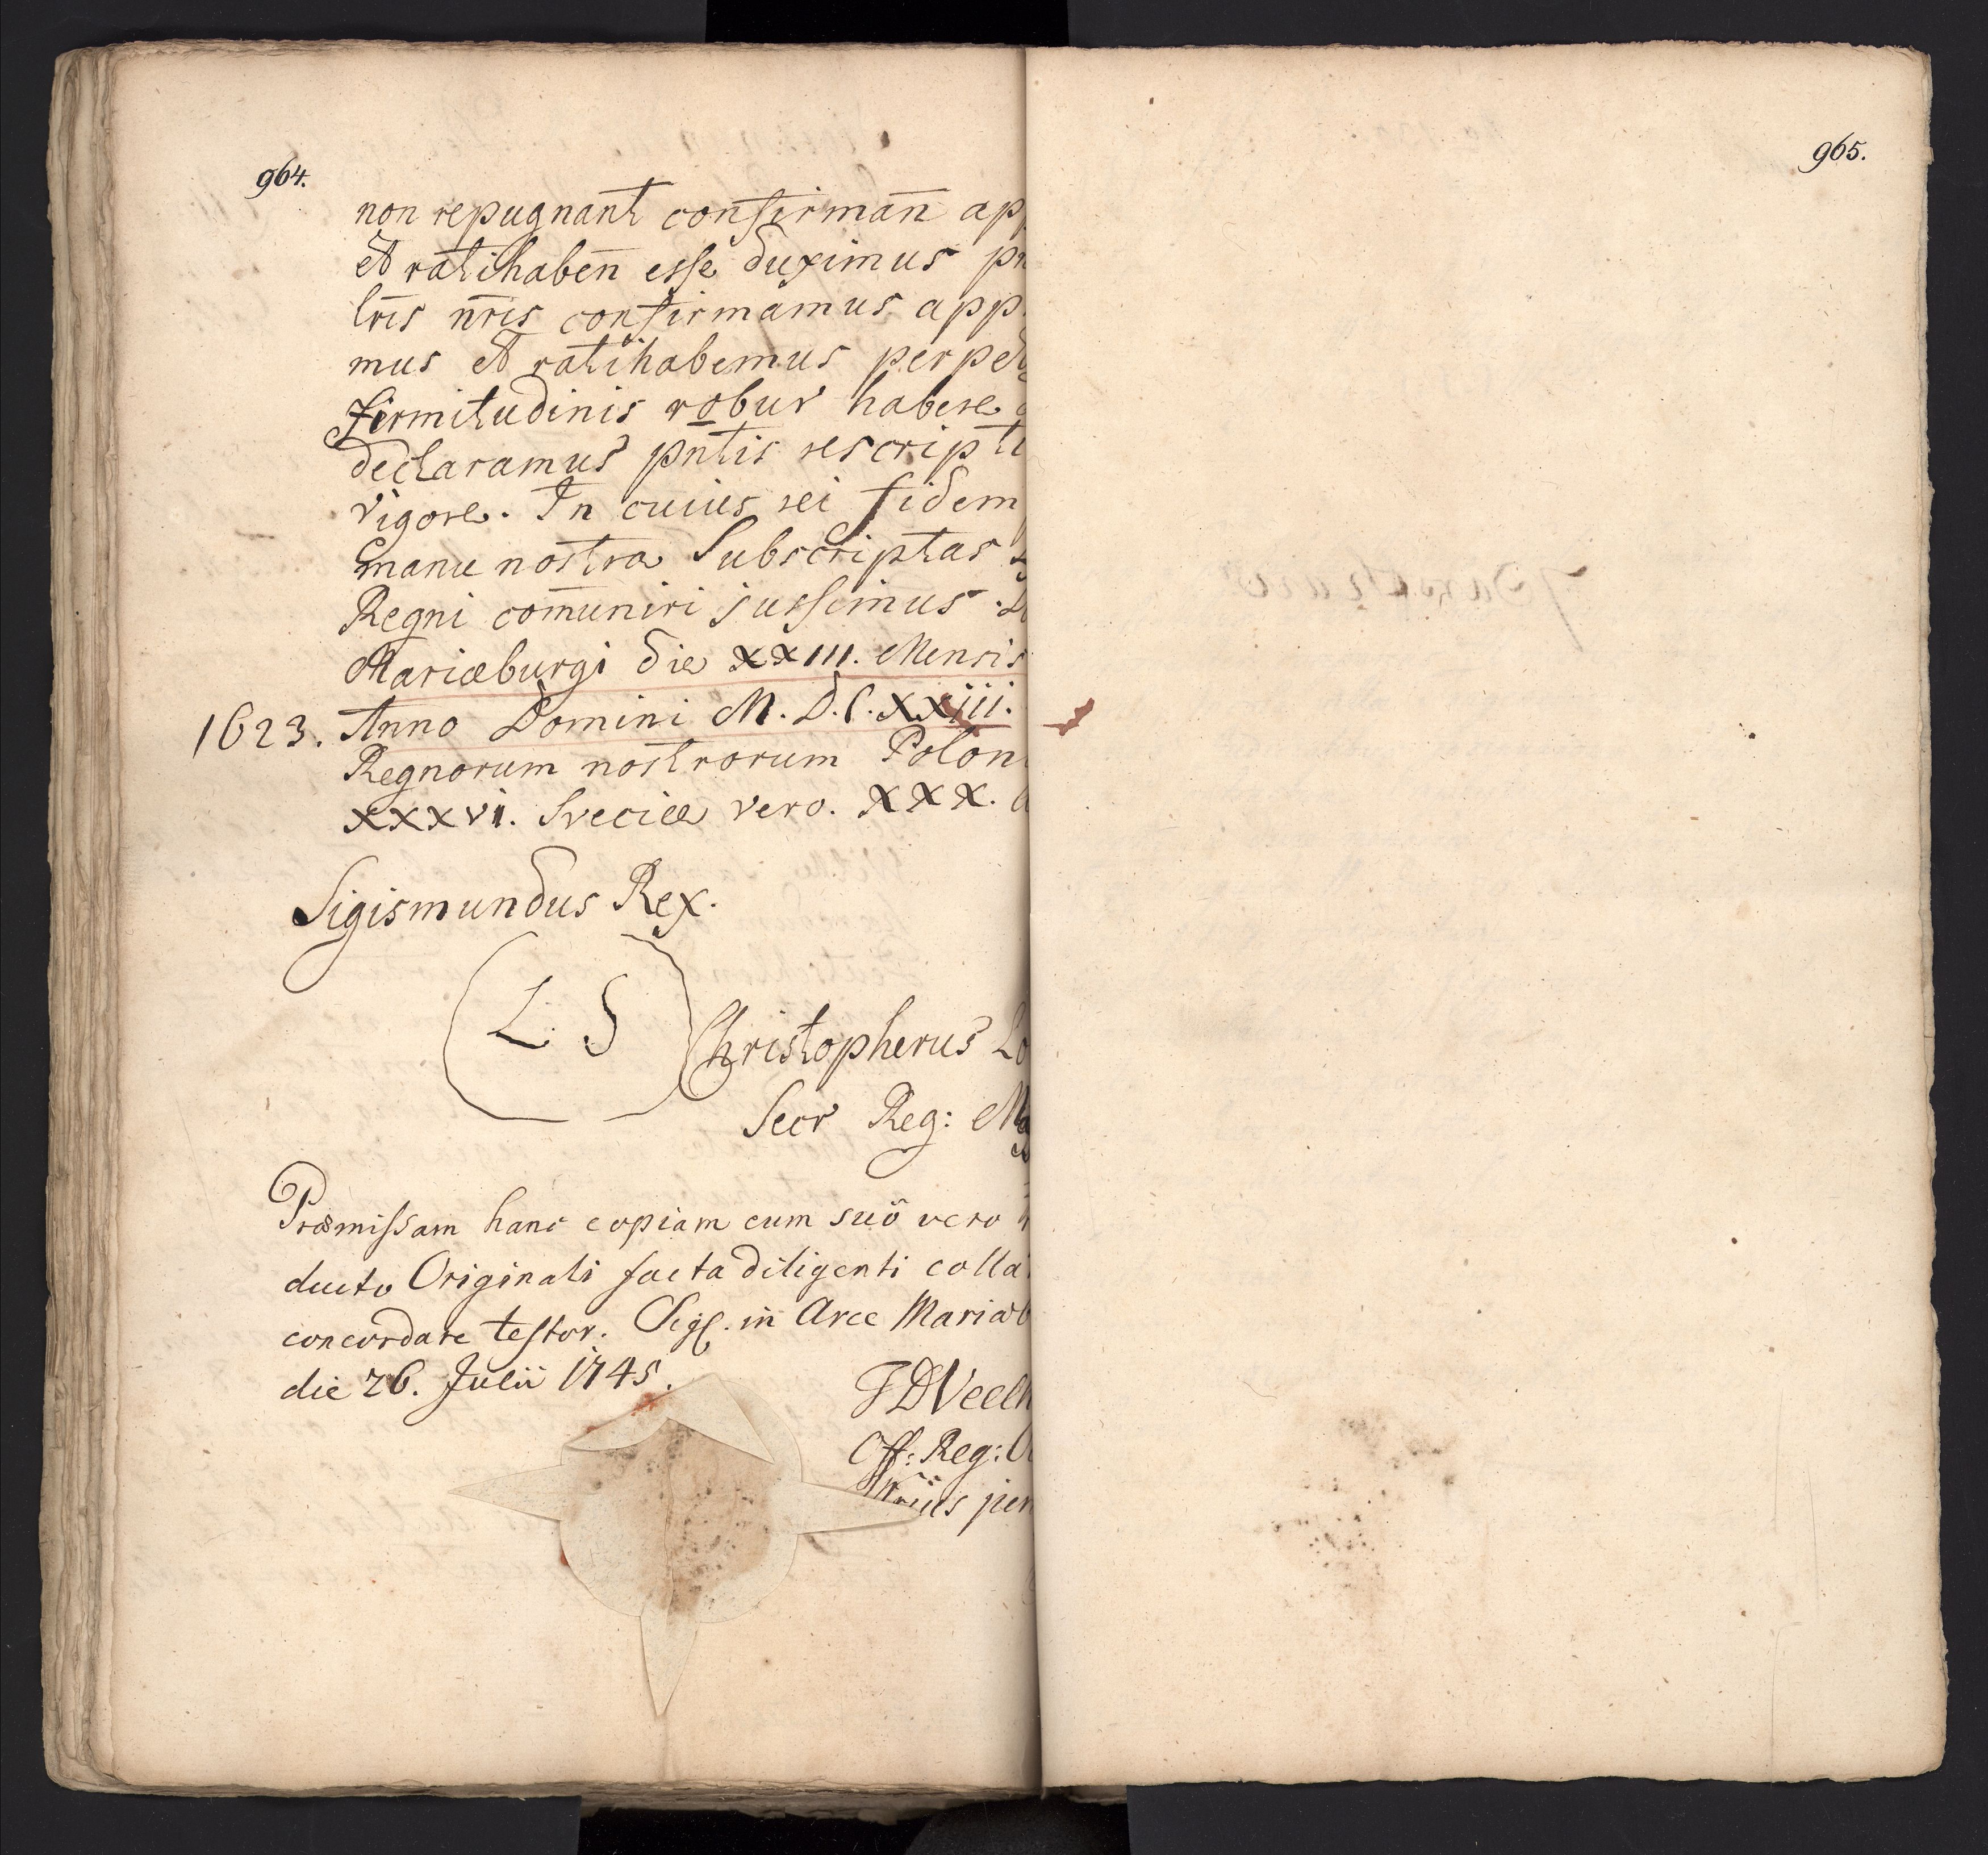 964.
non repugnant confirmañ ap
et ratihabeñ esse duximus pr
lr̃is nr̃is confirmamus app
mus et ratihabemus perpet
firmitudinis robur habere
declaramus pñtis rescripti
vigore. In cuius rei fidem
manu nostra Subscriptas
Regni com̄uniri jussimus.
Mariæburgi die XXIII. Mensis
1623. Anno Domini M.D.C.XXiii.
Regnorum nostrorum Polon
XXXvi. Sveciæ vero. XXX.
Sigismundus Rex.
L. S
Christopherus
Secr Reg: Ma
Præmissam hanc copiam cum suo vero
ducto Originali facta diligenti colla
concordare testor. Sigl. in Arce Mariæb
die 26. Julii 1745.
Off: Reg:
965.